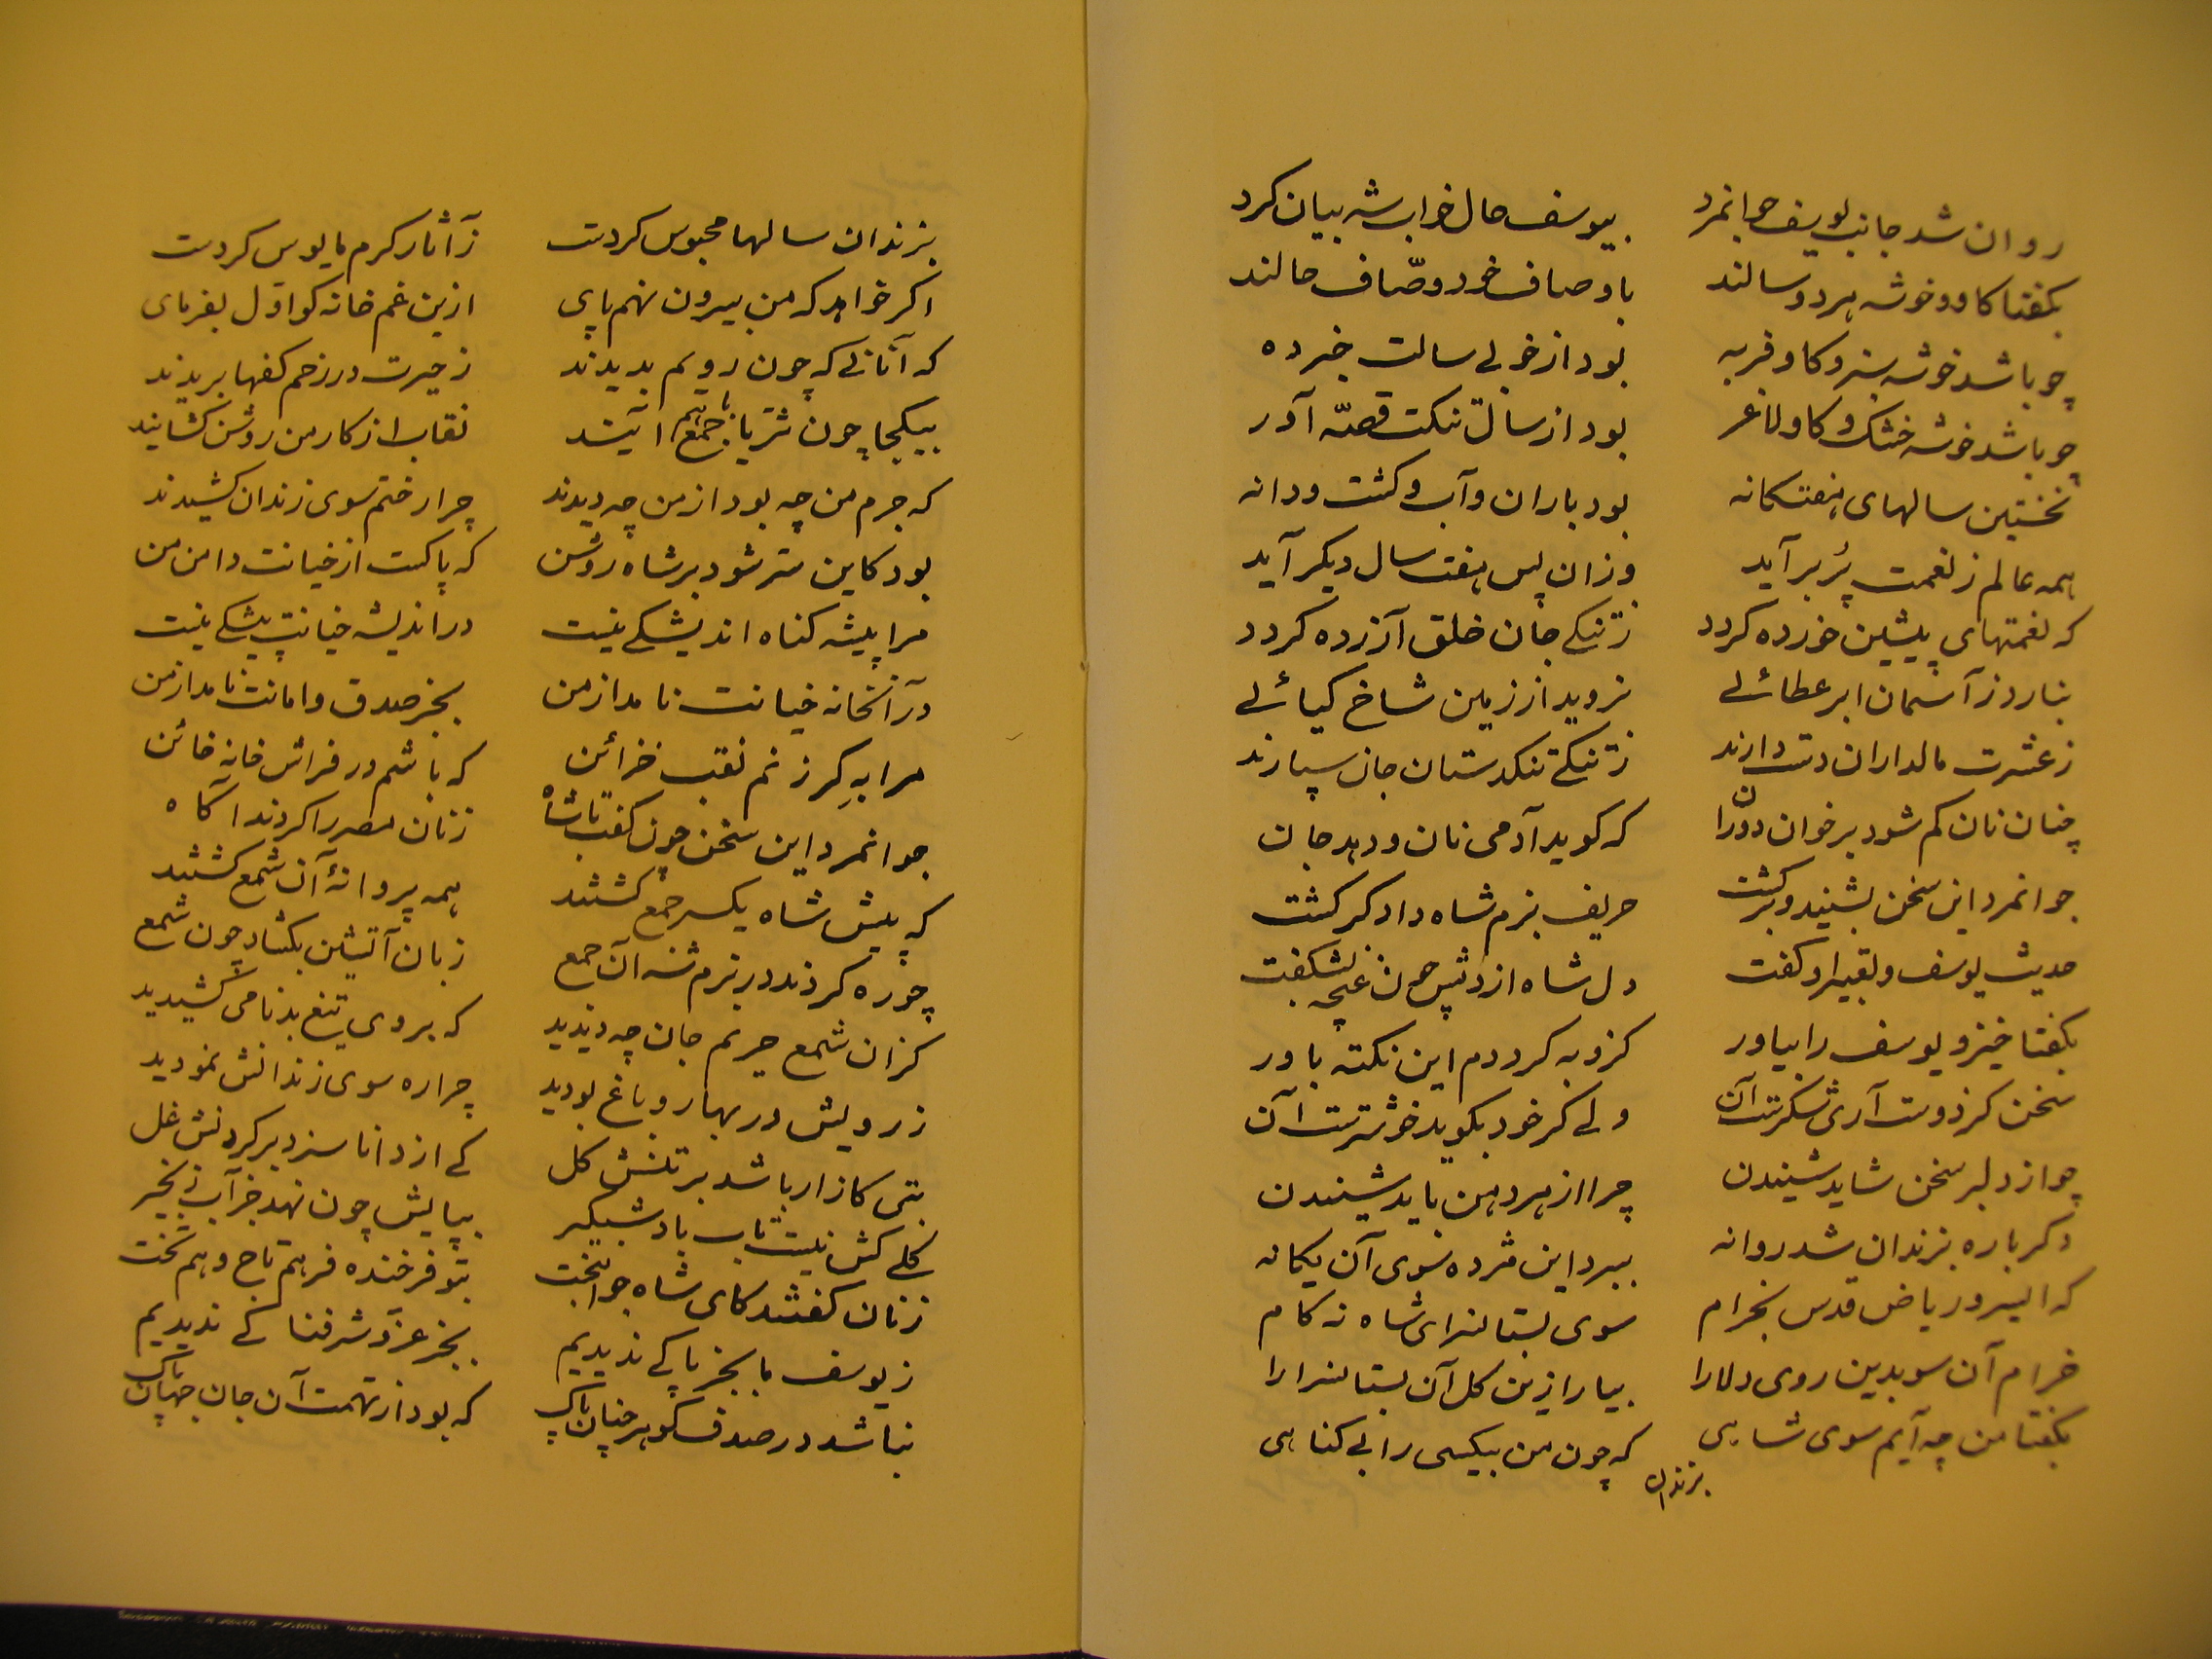 روان شد جانب یوسف جوانمرد
بیوسف حال خواب شه بیان کرد
بکفتا کاو و خوشه هر دو سالند
باوصاف خود وصّاف حالند
چو باشد خوشه سبز و کاو فربه
بود از خوبی سالت خبر ده
چو باشد خوشه خشک و کاو لاغر
بود از سال تنکت قصّه آور
نخستین سالهای هفتکانه
بود باران و آب و کشت و دانه
همه عالم ز نعمت پُر برآید
وزان پس هفت سال دیکر آید
که نعمتهای پیشین خورده کردد
ز تنکی جان خلق آزرده کردد
نبارد ز آسمان ابر عطائی
نروید از زمین شاخ کیائی
ز عشرت مالداران دست دارند
ز تنکی تنکدستان جان سپارند
چنان نان کم شود بر خوان دوران
که کوید آدمی نان و دهد جان
جوانمرد این سخن بشنید و برکشت
حریف بزم شاه دادکر کشت
حدیث یوسف و تعبیر او کفت
دل شاه از دمش چون غنچه بشکفت
بکفتا خیز و یوسف را بیاور
کزو به کرددم این نکته باور
سخن کز دوست آری شکرست آن
ولی کر خود بکوید خوشترست آن
چو از دلبر سخن شاید شنیدن
چرا از هر دهن باید شنیدن
دکر باره بزندان شد روانه
ببرد این مژده سوی آن یکانه
که ای سرو ریاض قدس بخرام
سوی بستانسرای شاه نه کام
خرام آن سو بدین روی دلارا
بیارا زین کل آن بستانسرا را
بکفتا من چه آیم سوی شاهی
که چون من بیکسی را بی کناهی
بزندان
بزندان سالها محبوس کردست
ز آثار کرم مایوس کردست
اکر خواهد که من بیرون نهم پای
ازین غم خانه کو اوّل بفرمای
که آنانی که چون رویم بدیدند
ز حیرت در رخم کفها بریدند
بیکجا چون ثریّا باهم آیند
جمع
نقاب از کار من روشن کشایند
که جرم من چه بود از من چه دیدند
چرا رختم سوی زندان کشیدند
بود کاین سر شود بر شاه روشن
که پاکست از خیانت دامن من
مرا پیشه کناه اندیشکی نیست
در اندیشه خیانت پیشکی نیست
در آنخانه خیانت نامد از من
بجز صدق و امانت نامد از من
مرا به کر زنم نقب خزائن
که باشم در فراش خانه خائن
جوانمرد این سخن چون کفت با شاه
زنان مصر را کردند آکاه
که پیش شاه یکسر جمع کشتند
همه پروانهٔ آن شمع کشتند
چو ره کردند در بزم شه آن جمع
زبان آتشین بکشاد چون شمع
کزان شمع حریم جان چه دیدید
که بر وی تیغ بدنامی کشیدید
ز رویش در بهار و باغ بودید
چرا ره سوی زندانش نمودید
بتی کازار باشد بر تنش کل
کی از دانا سزد بر کردنش غل
کلی کش نیست تاب باد شبکیر
بپایش چون نهد جز آب زنجیر
زنان کفتند کای شاه جوانبخت
بتو فرخنده فر هم تاج و هم تخت
ز یوسف ما بجز پاکی ندیدیم
بجز عزّ و شرفناکی ندیدیم
نباشد در صدف کوهر چنان پاک
که بود از تهمت آن جان جهان پاک